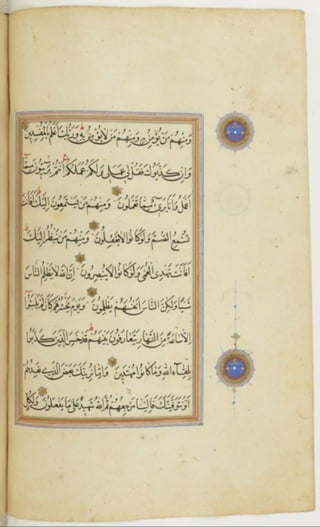 ومنهم من يؤمن به ومنهم من لا يؤمن به وربك أعلم بالمفسدين
وإن كذبوك فقل لي عملي ولكم عملكم أنتم بريئون مما
أعمل وأنا بريء مما تعملون ومنهم من يستمعون إليك أفأنت
تسمع الصم ولو كانوا لا يعقلون ومنهم من ينظر إليك
أفأنت تهدي العمي ولو كانوا لا يبصرون إن الله لا يظلم الناس
شيئا ولكن الناس أنفسهم يظلمون ويوم يحشرهم كأن لم يلبثوا
إلا ساعة من النهار يتعارفون بينهم قد خسر الذين كذبوا
بلقاء الله وما كانوا مهتدين وإما نرينك بعض الذي نعدهم
أو نتوفينك فإلينا مرجعهم ثم الله شهيد على ما يفعلون ولكل